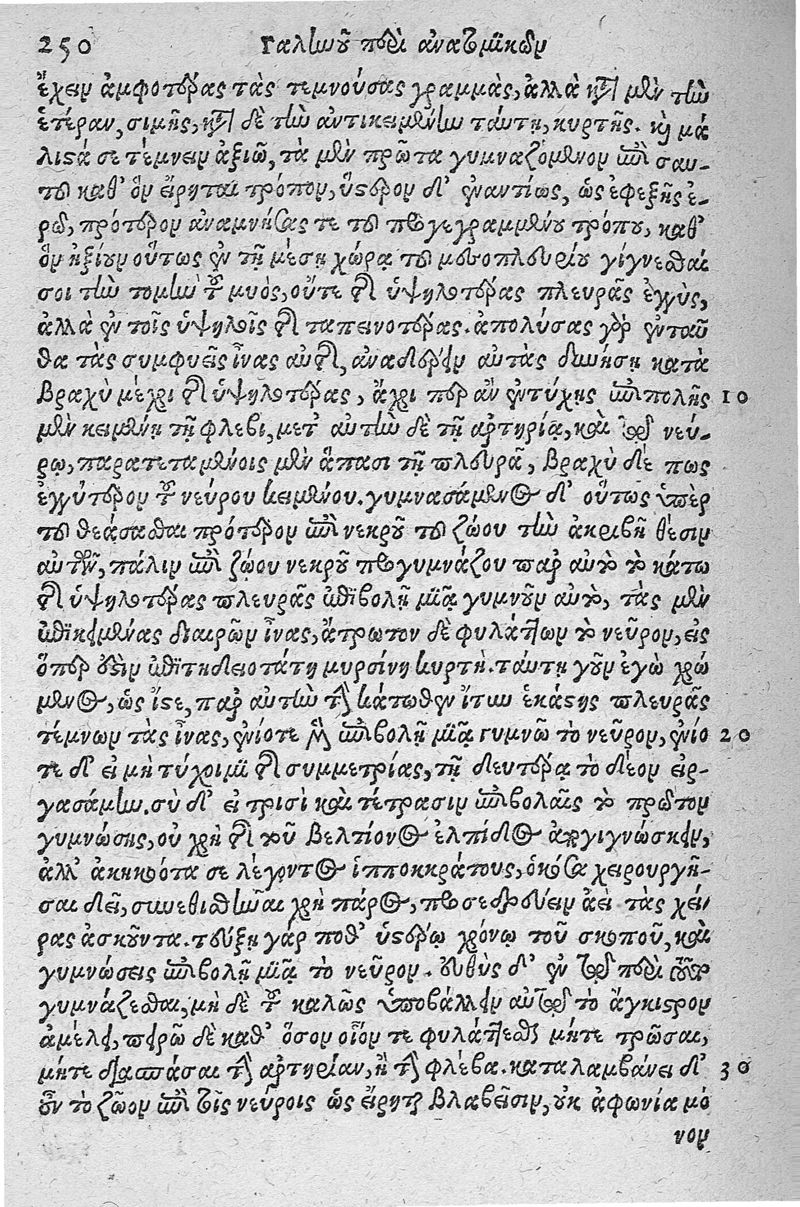 250 Γαληνοῦ περὶ ἀνατομικῶν
ἔχειν ἀμφοτέρας τὰς τεμνούσας γραμμὰς, ἀλλὰ κατὰ μὲν τὴν
ἑτέραν, σιμῆς, κατὰ δὲ τὴν ἀντικειμένην ταύτῃ, κυρτῆς. καὶ μά
λιστά σε τέμνειν ἀξιῶ, τὰ μὲν πρῶτα γυμναζόμενον ἐπὶ σαυ-
τοῦ καθ' ὃν εἴρηται τρόπον, ὕστερον δ' ἐναντίως, ὡς ἐφεξῆς ἐ-
ρῶ, πρότερον ἀναμνήσας τε τοῦ προγεγραμμένου τρόπου, καθ'
ὃν ἠξίουν οὕτως ἐν τῇ μέσῃ χώρᾳ τοῦ μεσοπλευρίου γίγνεσθαί
σοι τὴν τομὴν τοῦ μυὸς, οὔτε τῆς ὑψηλοτέρας πλευρᾶς ἐγγὺς,
ἀλλὰ ἐν τοῖς ὑψηλοῖς τῆς ταπεινοτέρας. ἀπολύσας γὰρ ἐνταῦ
θα τὰς συμφυεῖς ἶνας αὐτῆς, ἀναδέρειν αὐτὰς δυνήσῃ κατὰ
βραχὺ μέχρι τῆς ὑψηλοτέρας, ἄχρι περ ἂν ἐντύχῃς ἐπιπολῆς 10
μὲν κειμένῃ τῇ φλεβὶ, μετ' αὐτὴν δὲ τῇ ἀρτηρίᾳ, καὶ τῷ νεύ-
ρῳ, παρατεταμένοις μὲν ἅπασι τῇ πλευρᾷ, βραχὺ δέ πως
ἐγγύτερον τοῦ νεύρου κειμένου. γυμνασάμενος δ' οὕτως ὑπὲρ
τοῦ θεάσασθαι πρότερον ἐπὶ νεκροῦ τοῦ ζώου τὴν ἀκριβῆ θέσιν
αὐτῶν, πάλιν ἐπὶ ζώου νεκροῦ προγυμνάζου παρ' αὐτὸ τὸ κάτω
τῆς ὑψηλοτέρας πλευρᾶς ἐπιβολῇ μιᾷ γυμνοῦν αὐτὸ, τὰς μὲν
ἐπικειμένας διαιρῶν ἶνας, ἄτρωτον δὲ φυλάττων τὸ νεῦρον, εἰς
ὅπερ ἐστὶν ἐπιτηδειοτάτη μυρσίνη κυρτή. ταύτῃ γοῦν ἐγὼ χρώ
μενος, ὡς ἴστε, παρ' αὐτὴν τὴν κάτωθεν ἴτυν ἑκάστης πλευρᾶς
τέμνων τὰς ἶνας, ἐνίοτε μὲν ἐπιβολῇ μιᾷ γυμνῶ τὸ νεῦρον, ἐνίο 20
τε δ' εἰ μὴ τύχοιμι τῆς συμμετρίας, τῇ δευτέρᾳ τὸ δέον εἰρ-
γασάμην. σὺ δ' εἰ τρισὶ καὶ τέτρασιν ἐπιβολαῖς τὸ πρῶτον
γυμνώσῃς, οὐ χρὴ τῆς τοῦ βελτίονος ἐλπίδος ἀπογιγνώσκειν,
ἀλλ' ἀκηκοότα σε λέγοντος ἱπποκράτους, ὁκόσα χειρουργῆ-
σαι δεῖ, συνεθισθῆναι χρὴ πάρος, προσεδρεύειν ἀεὶ τὰς χεῖ
ρας ἀσκοῦντα. τεύξῃ γάρ ποθ' ὑστέρῳ χρόνῳ τοῦ σκοποῦ, καὶ
γυμνώσεις ἐπιβολῇ μιᾷ τὸ νεῦρον. εὐθὺς δ' ἐν τῷ περὶ τοῦτο
γυμνάζεσθαι, μηδὲ τοῦ καλῶς ὑποβάλλειν αὐτῷ τὸ ἄγκιστρον
ἀμέλει, πειρῶ δὲ καθ' ὅσον οἷόν τε φυλάττεσθαι μήτε τρῶσαι,
μήτε διασπάσαι τὴν ἀρτηρίαν, ἢ τὴν φλέβα. καταλαμβάνει δ' 30
οὖν τὸ ζῶον ἐπὶ τοῖς νεύροις ὡς εἴρηται βλαβεῖσιν, οὐκ ἀφωνία μό
νον